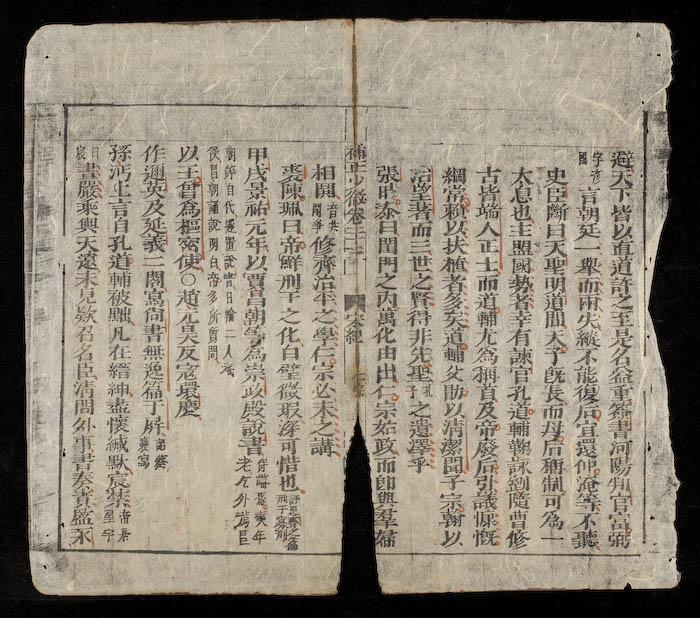 避天下皆以直道許之至是名益重簽書河陽判官富弼
字彥國言朝廷一舉而兩失縱不能復后宜還仲淹等不聽
史臣斷曰天聖明道間天子旣長而母后稱制可為一
太息也主盟國教者幸有諫官孔道輔鞠詠劉隨曹修
古皆端人正士而道輔尤為稱首及帝廢后引議慷慨
綱常賴以扶植者多矣道輔父勗以清潔聞子宗翰以
治望著而三世之賢得非先聖孔子之遺澤乎
張時泰曰閨門之內萬化由出仁宗始政而卽與羣臣
補正少微卷二十 宋紀
相鬩音共鬩爭修齊治平之學仁宗必未之講
裘陳珮曰帝鮮刑于之化白璧微瑕深可惜也
甲戌景祐元年以賈昌朝等為崇政殿說書
以王曾為樞密使〇趙元昊反寇環慶
作邇英及延義二閣寫尚書無逸篇于屏
孫沔上言自孔道輔被黜凡在縉紳盡懷緘默宸
畫嚴乘輿天遠未見欵召名臣清問外事書奏責監永